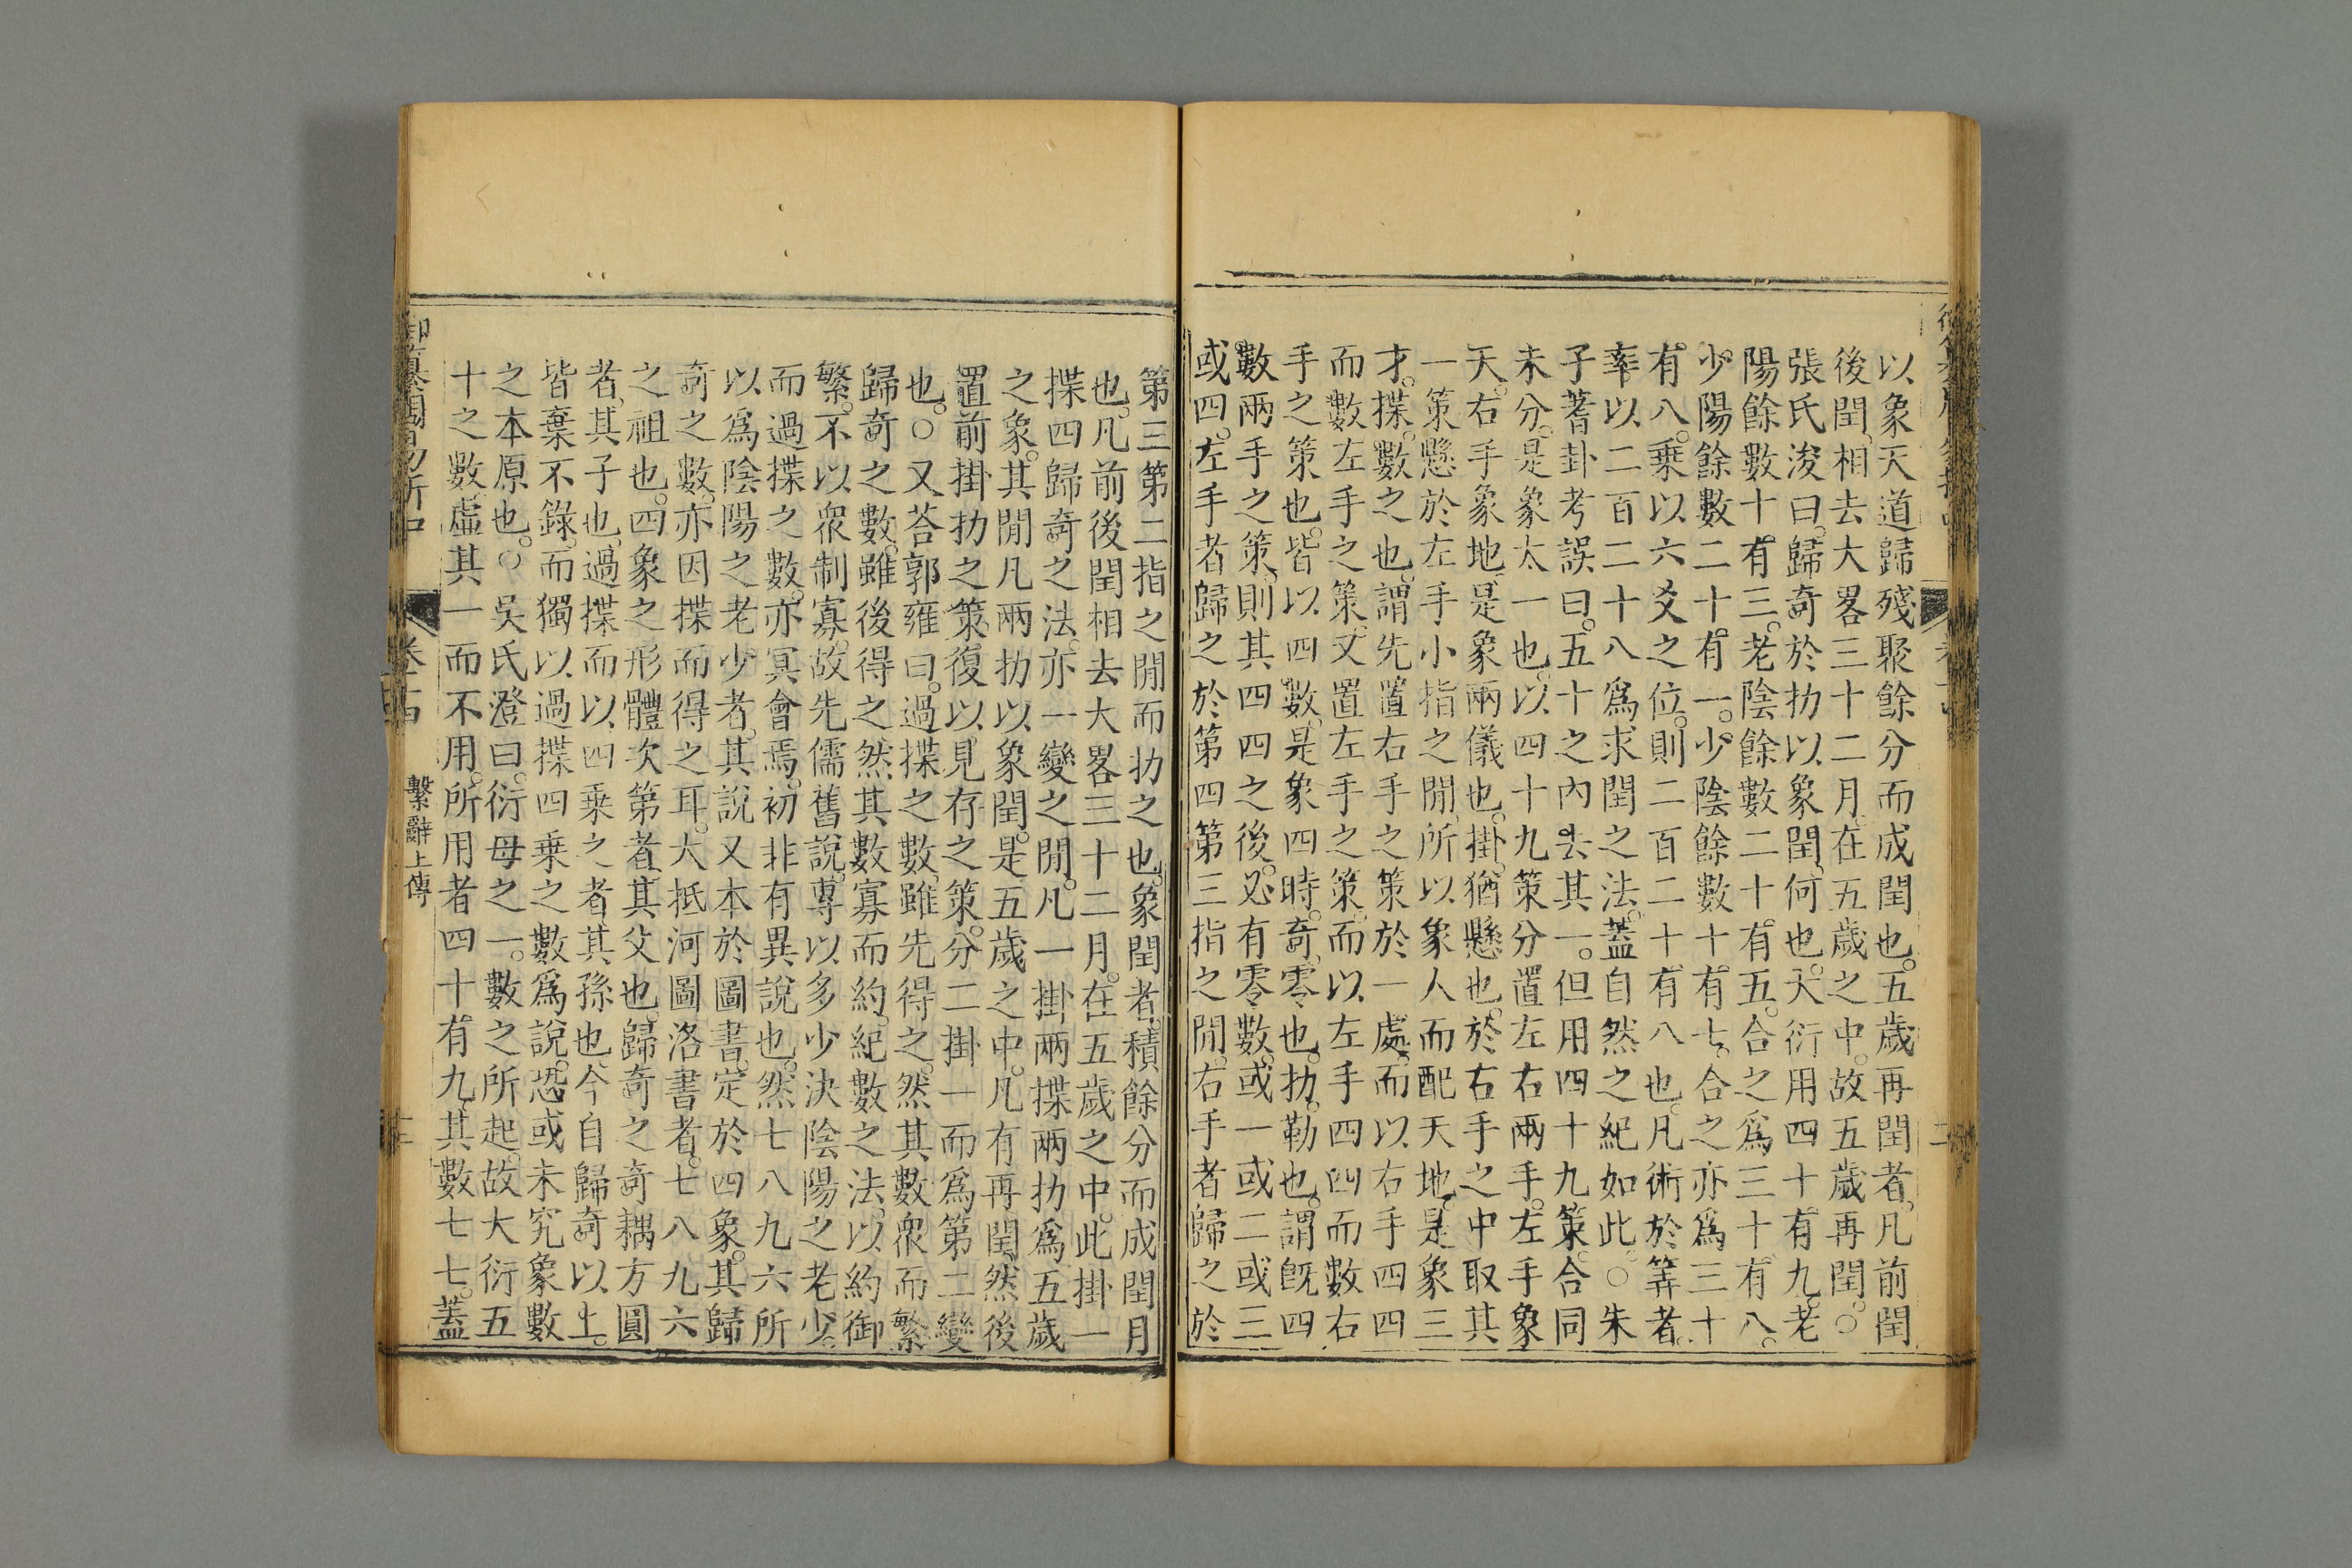 以象天道歸殘聚餘分而成閏也。五歲再閏者。凡前閏
後閏、相去大畧三十二月、在五歲之中。故五歲再閏。○
張氏浚曰、歸奇於扐以象閏、何也。大衍用四十。有九。老
陽餘數十。有三。老陰餘數二十。有五。合之爲三十。有八。
少陽餘數二十。有一。少陰餘數十。有七。合之亦爲三十
有八。乗以六爻之位。則二百二十。有八也。凡術於筭者。
率以二百二十八爲求閏之法。蓋自然之紀如此。○朱
子蓍卦考誤曰。五十之内去其一。但用四十九策。合同
未分。是象太一也。以四十九策分置左右兩手。左手象
天。右手象地。是象兩儀也。掛。猶懸也。於右手之中取其
一策懸於左手小指之閒、所以象人而配天地。是象三
才。揲。數之也。謂先置右手之策於一處。而以右手四四
而數左手之策。又置左手之策。而以左手四四而數右
手之策也。皆以四數。是象四時。奇。零也。扐。勒也。謂旣四
數兩手之策。則其四四之後。必有零數。或一或二或三
或四。左手者歸之於第四第三指之閒。右手者歸之於
第三第二指之閒而扐之也。象閏者。積餘分而成閏月
也。凡前後閏相去大畧三十二月。在五歲之中。此掛一
揲四歸奇之法。亦一變之閒。凡一掛兩揲兩扐爲五歲
之象。其閒凡兩扐以象閏。是五歲之中。凡有再閏。然後
置前掛扐之策。復以見存之策。分二掛一而爲第二變
也。○又荅郭雍曰。過揲之數。雖先得之。然其數衆而繁
歸奇之數。雖後得之然其數寡而約。紀數之法。以約御
繁。不以衆制寡。故先儒舊說。專以多少決陰陽之老少。
而過揲之數。亦冥會焉。初非有異說也。然七八九六所
以爲陰陽之老少者。其說又本於圖書。定於四象。其歸
奇之數。亦因揲而得之耳。大抵河圖洛書者。七八九六
之祖也。四象之形體次第者。其父也。歸奇之奇耦方圓
者、其子也、過揲而以四乗之者、其孫也今自歸奇以上。
皆棄不錄。而獨以過揲四乗之數爲說。恐或未究象數
之本原也。○吳氏澄曰。衍母之一。數之所起。故大衍五
十之數、虛其一而不用。所用者四十。有九。其數七七。蓋
卷十四
繫辭上傳